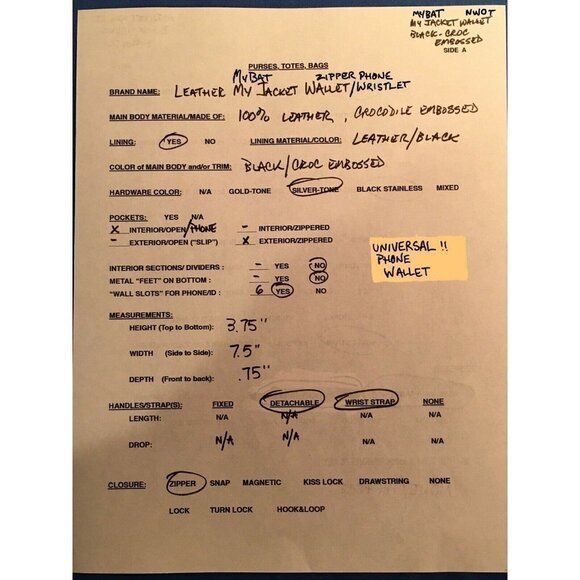 MYBAT NWOT
MY JACKET WALLET
BLACK-CROC
EMBOSSED
SIDE A
PURSES, TOTES, BAGS
MYBAT ZIPPER PHONE
BRAND NAME: LEATHER MY JACKET WALLET/WRISTLET
MAIN BODY MATERIAL/MADE OF: 100% LEATHER, CROCODILE EMBOSSED
LINING: YES NO LINING MATERIAL/COLOR: LEATHER/BLACK
COLOR of MAIN BODY and/or TRIM: BLACK/CROC EMBOSSED
HARDWARE COLOR: N/A GOLD-TONE SILVER-TONE BLACK STAINLESS MIXED
POCKETS: YES N/A
X INTERIOR/OPEN/PHONE - INTERIOR/ZIPPERED
- EXTERIOR/OPEN ("SLIP") X EXTERIOR/ZIPPERED
UNIVERSAL !!
PHONE
WALLET
INTERIOR SECTIONS/ DIVIDERS : - YES NO
METAL "FEET" ON BOTTOM : - YES NO
"WALL SLOTS" FOR PHONE/ID : 6 YES NO
MEASUREMENTS:
HEIGHT (Top to Bottom): 3.75"
WIDTH (Side to Side): 7.5"
DEPTH (Front to back): .75"
HANDLES/STRAP(S): FIXED DETACHABLE WRIST STRAP NONE
LENGTH: N/A N/A N/A N/A
DROP: N/A N/A N/A N/A
CLOSURE: ZIPPER SNAP MAGNETIC KISS LOCK DRAWSTRING NONE
LOCK TURN LOCK HOOK&LOOP